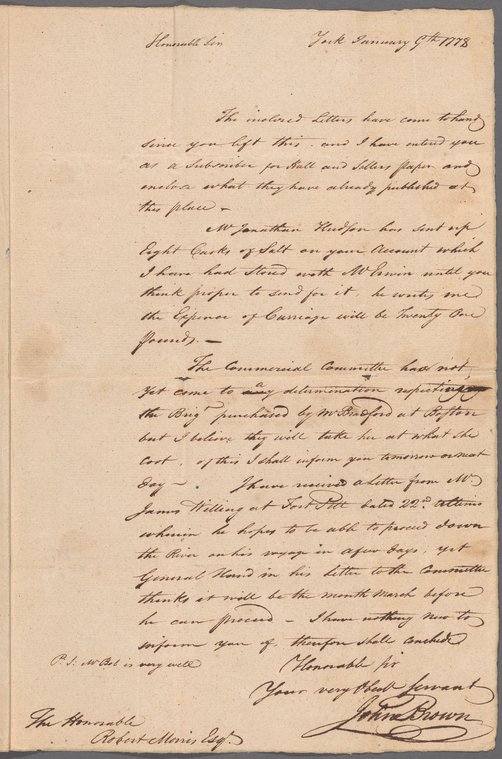 Honorable Sir York January 9th 1778
The inclosed Letters have come to hand
since you left this. and I have entered you
as a Subscriber for Hall and Sellers paper. and
inclose what they have already published at
this place -
Mr Jonathan Hudson has sent up
Eight Casks of Salt on your Account which
I have had Stored with Mr Erwin until you
think proper to send for it. he writes me
the Expence of Carriage will be Twenty One
Pounds. —
The Commercial Committee has not
Yet come to any determination respecting
the Brigt purchased by Mr Bradford at Boston
but I believe they will take her at what She
Cost. of this I shall inform you tomorrow or next
day — . I have received a Letter from Mr
James Willing at Fort Pitt dated 22nd Ultimo
wherein he hopes to be able to proceed down
the River on his voyage in a few days, yet
General Hand in his Letter to the Committee
thinks it will be the month March before
he can proceed - I have nothing New to
inform you of. therefore shall conclude
P.S. Mr Bob is very well Honorable Sir
Your very Obedt Servant
John Brown
The Honorable
Robert Morris Esqr.